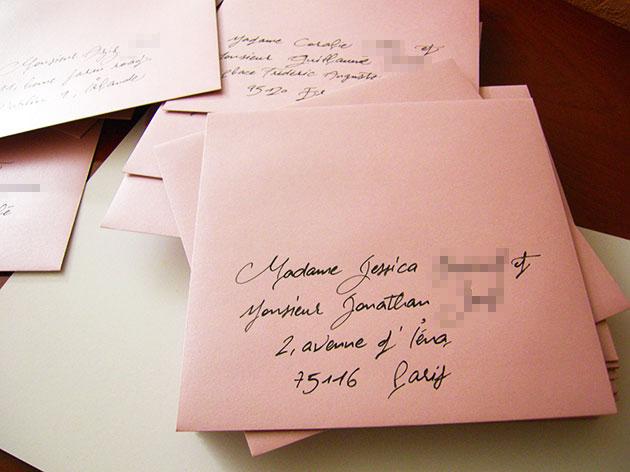 Monsieur
Dublin 1, Irlande
Madame Coralie et
Monsieur Guillaume
place Frédéric Auguste
95120
Madame Jessica et
Monsieur Jonathan
2, avenue d'Iéna
75116 Paris